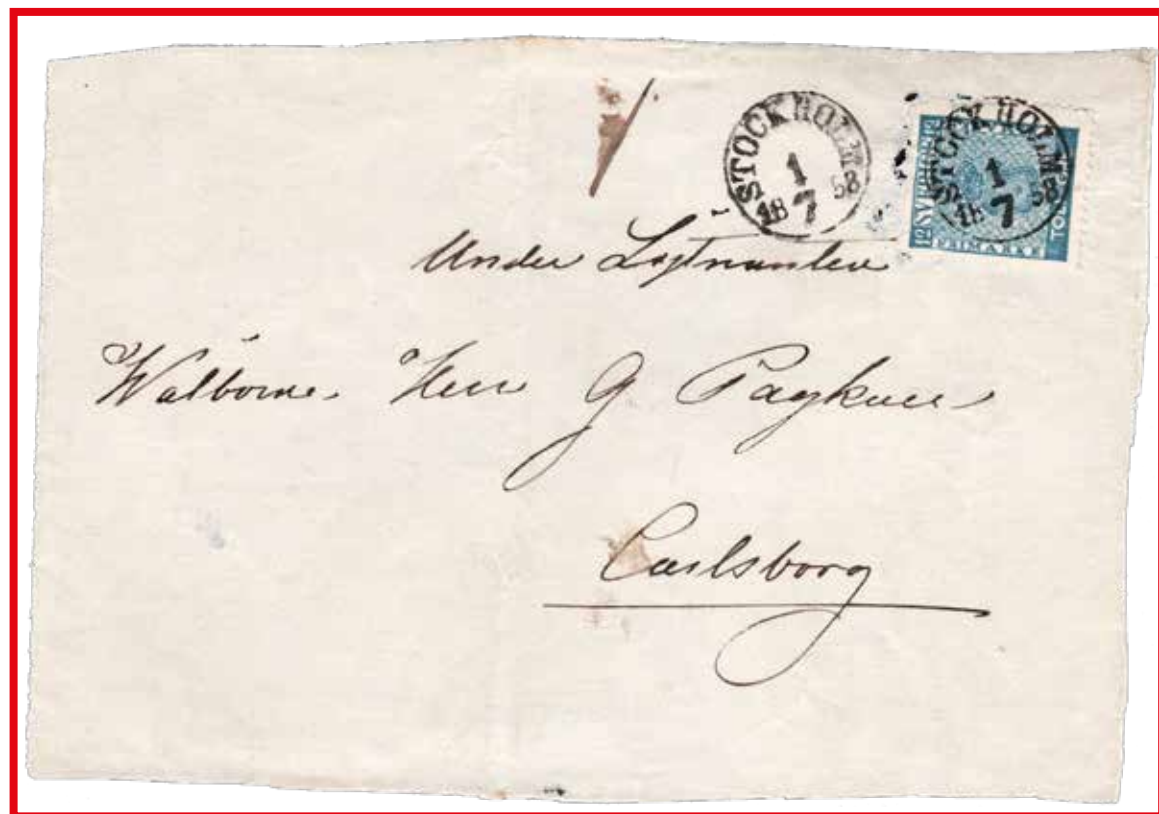 STOCKHOLM
1
7
18 58
STOCKHOLM
1
7
18 58
SVERIGE
FRIMÄRKE
12
12
Under Löjtnanten
Wälborne Herr G Paykull
Carlsborg